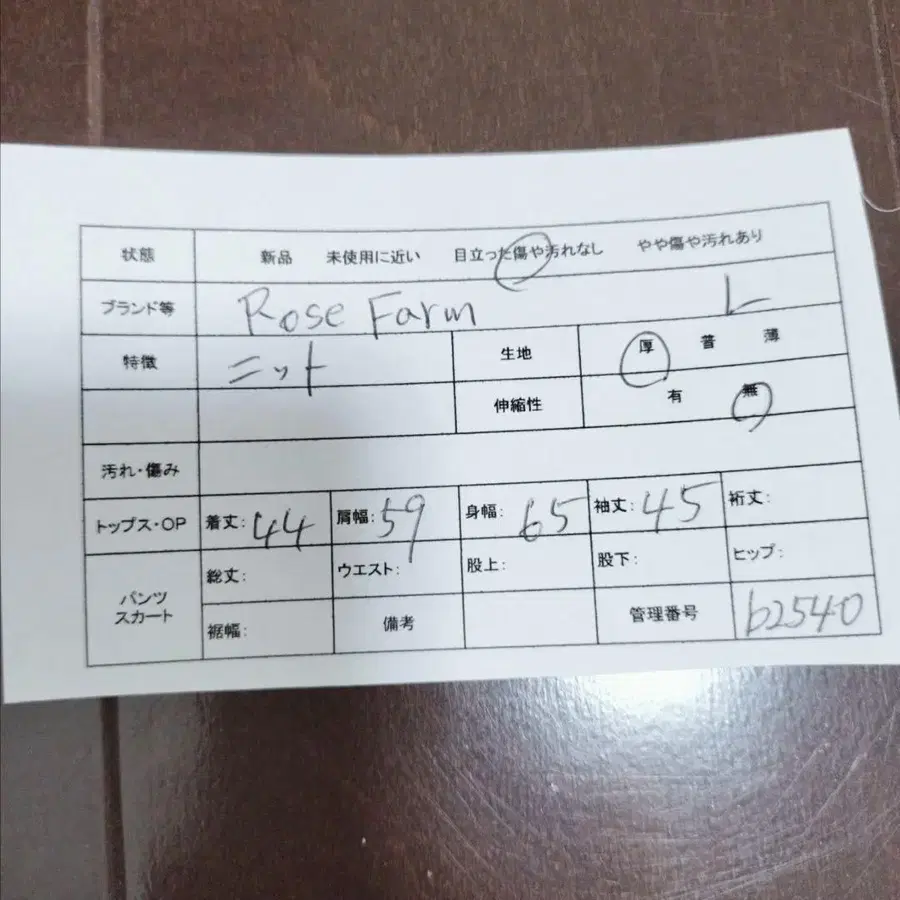 状態 新品 未使用に近い 目立った傷や汚れなし やや傷や汚れあり
ブランド等 Rose Farm L
特徴 ニット 生地 厚 普 薄
伸縮性 有 無
汚れ・傷み
トップス・OP 着丈: 44 肩幅: 59 身幅: 65 袖丈: 45 裄丈:
パンツ スカート 総丈: ウエスト: 股上: 股下: ヒップ:
裾幅: 備考 管理番号 b2540